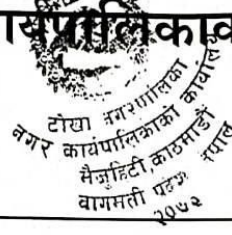 र्यपालिकाक
टोखा नगरपालिका
नगर कार्यपालिकाको कार्यालय
मैजुहिटी, काठमाडौं
वागमती प्रदेश नेपाल
२०७२